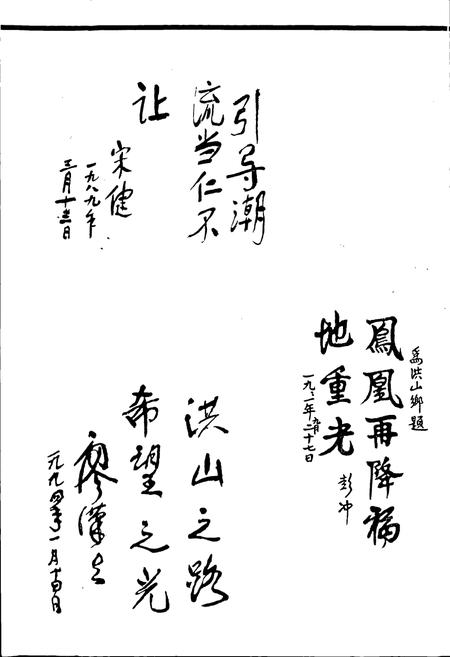 引导潮
流当仁不
让
宋健
一九八九年
三月十三日
为洪山乡题
鳳凰再降福
地重光
彭冲
洪山之路
希望之光
廖漢生
一九九四年一月十四日